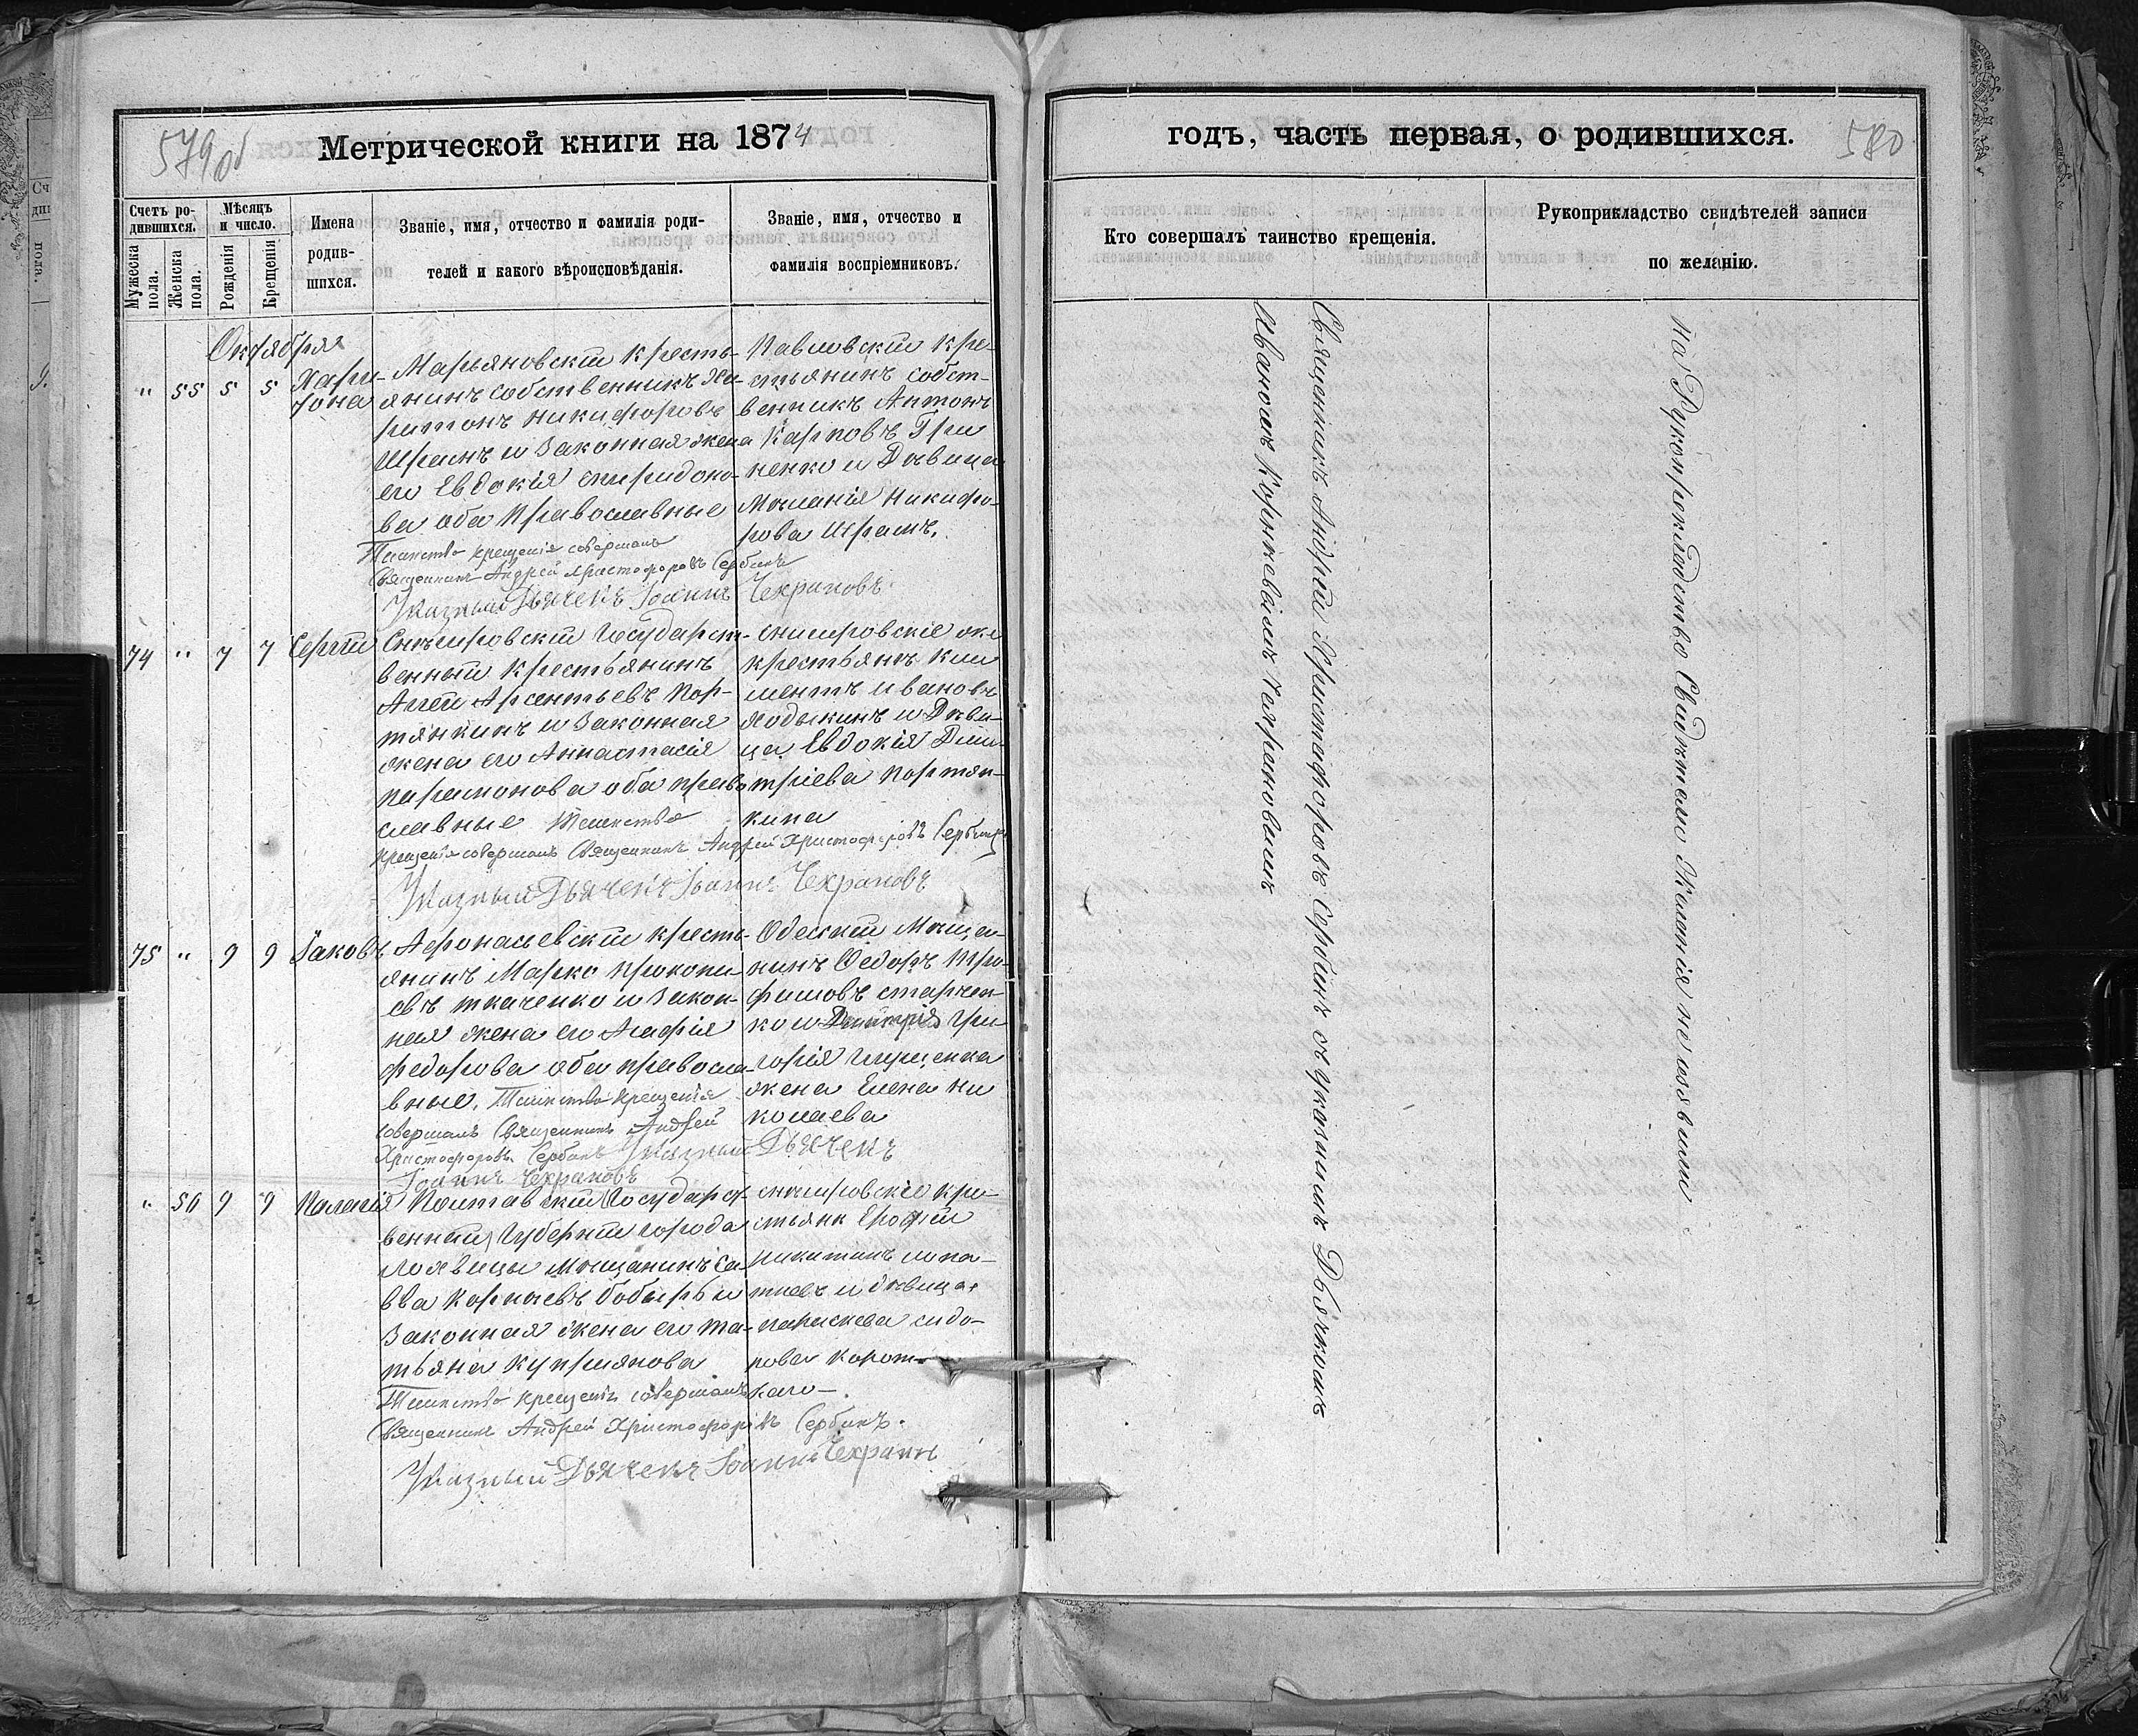 579 об
Метрической книги на 1874
Счетъ ро-
дившихся.
Мѣсяцъ
и число.
Мужеска
пола.
Женска
пола.
Рожденія
Крещенія
Имена
родив-
шихся.
Званіе, имя, отчество и фамилія роди-
телей и какого вѣроисповѣданія.
Званіе, имя, отчество и
фамилія воспріемниковъ.
Октября
" 55 5 5
Хари-
тона
Марьяновскій кресть-
янинъ собственникъ Ха-
ритонъ Никифоровъ
Шрамъ и законная жена
его Евдокія Спиридоно-
ва оба православные
Таинство крещенія совершалъ
Священникъ Андрей Христофоровъ Сербинъ
Указный Дьячекъ Іоаннъ Чехрановъ
Павловскій кре-
стьянинъ собст-
венникъ Антонъ
Карповъ Гри
ненко и Дѣвица
Меланія Никифо-
рова Шрамъ.
74 " 7 7 Сергій
Снѣгировскій Государст-
венный крестьянинъ
Агей Арсентьевъ Пор-
тянкинъ и законная
жена его Анастасія
Парамонова оба право
славные Таинство
крещенія совершалъ Священникъ Андрей Христофоровъ Сербинъ
Указный Дьячекъ Іоаннъ Чехрановъ
крестьянъ Кли
ментъ Ивановъ
Ходыкинъ и Дѣви-
ца Евдокія Дми-
тріева Портян-
кина
75 " 9 9 Іаковъ
Афонасьевскій кресть-
янинъ Марко Прокопи
евъ Ткаченко и закон-
ная жена его Агафія
Федорова оба правосла-
вные. Таинство крещенія
совершалъ Священникъ Андрей
Христофоровъ Сербинъ Указный Дьячекъ
Іоаннъ Чехрановъ
Одесскій Мѣщан-
нинъ Федоръ Тро-
фимовъ Старчен-
ко и Гри
горія Грищенка
жена Елена Ни
колаева
" 56 9 9 Палагія
Полтавскій Государст-
венный Губерніи города
Лохвицы Мѣщанинъ Са-
вва Корнѣевъ Бобырь и
законная жена его Та-
тьяна Купріянова
Таинство крещенія совершалъ
Священникъ Андрей Христофоровъ Сербинъ.
Указный Дьячекъ Іоаннъ Чехранъ
Снѣгировскіе кре-
стьянк Ерофѣй
Никитинъ Лопа-
тневъ и дѣвица
Параскева Сидо-
рова Корот-
каго
годъ, часть первая, о родившихся.
580
Кто совершалъ таинство крещенія.
Рукоприкладство свидѣтелей записи
по желанію.
Священникъ Андрей Христофоровъ Сербинъ съ указнымъ Дьячкомъ
Иваномъ Корнѣевымъ Чехрановымъ
На Рукоприкладство Свидѣтели Желанія не изявили